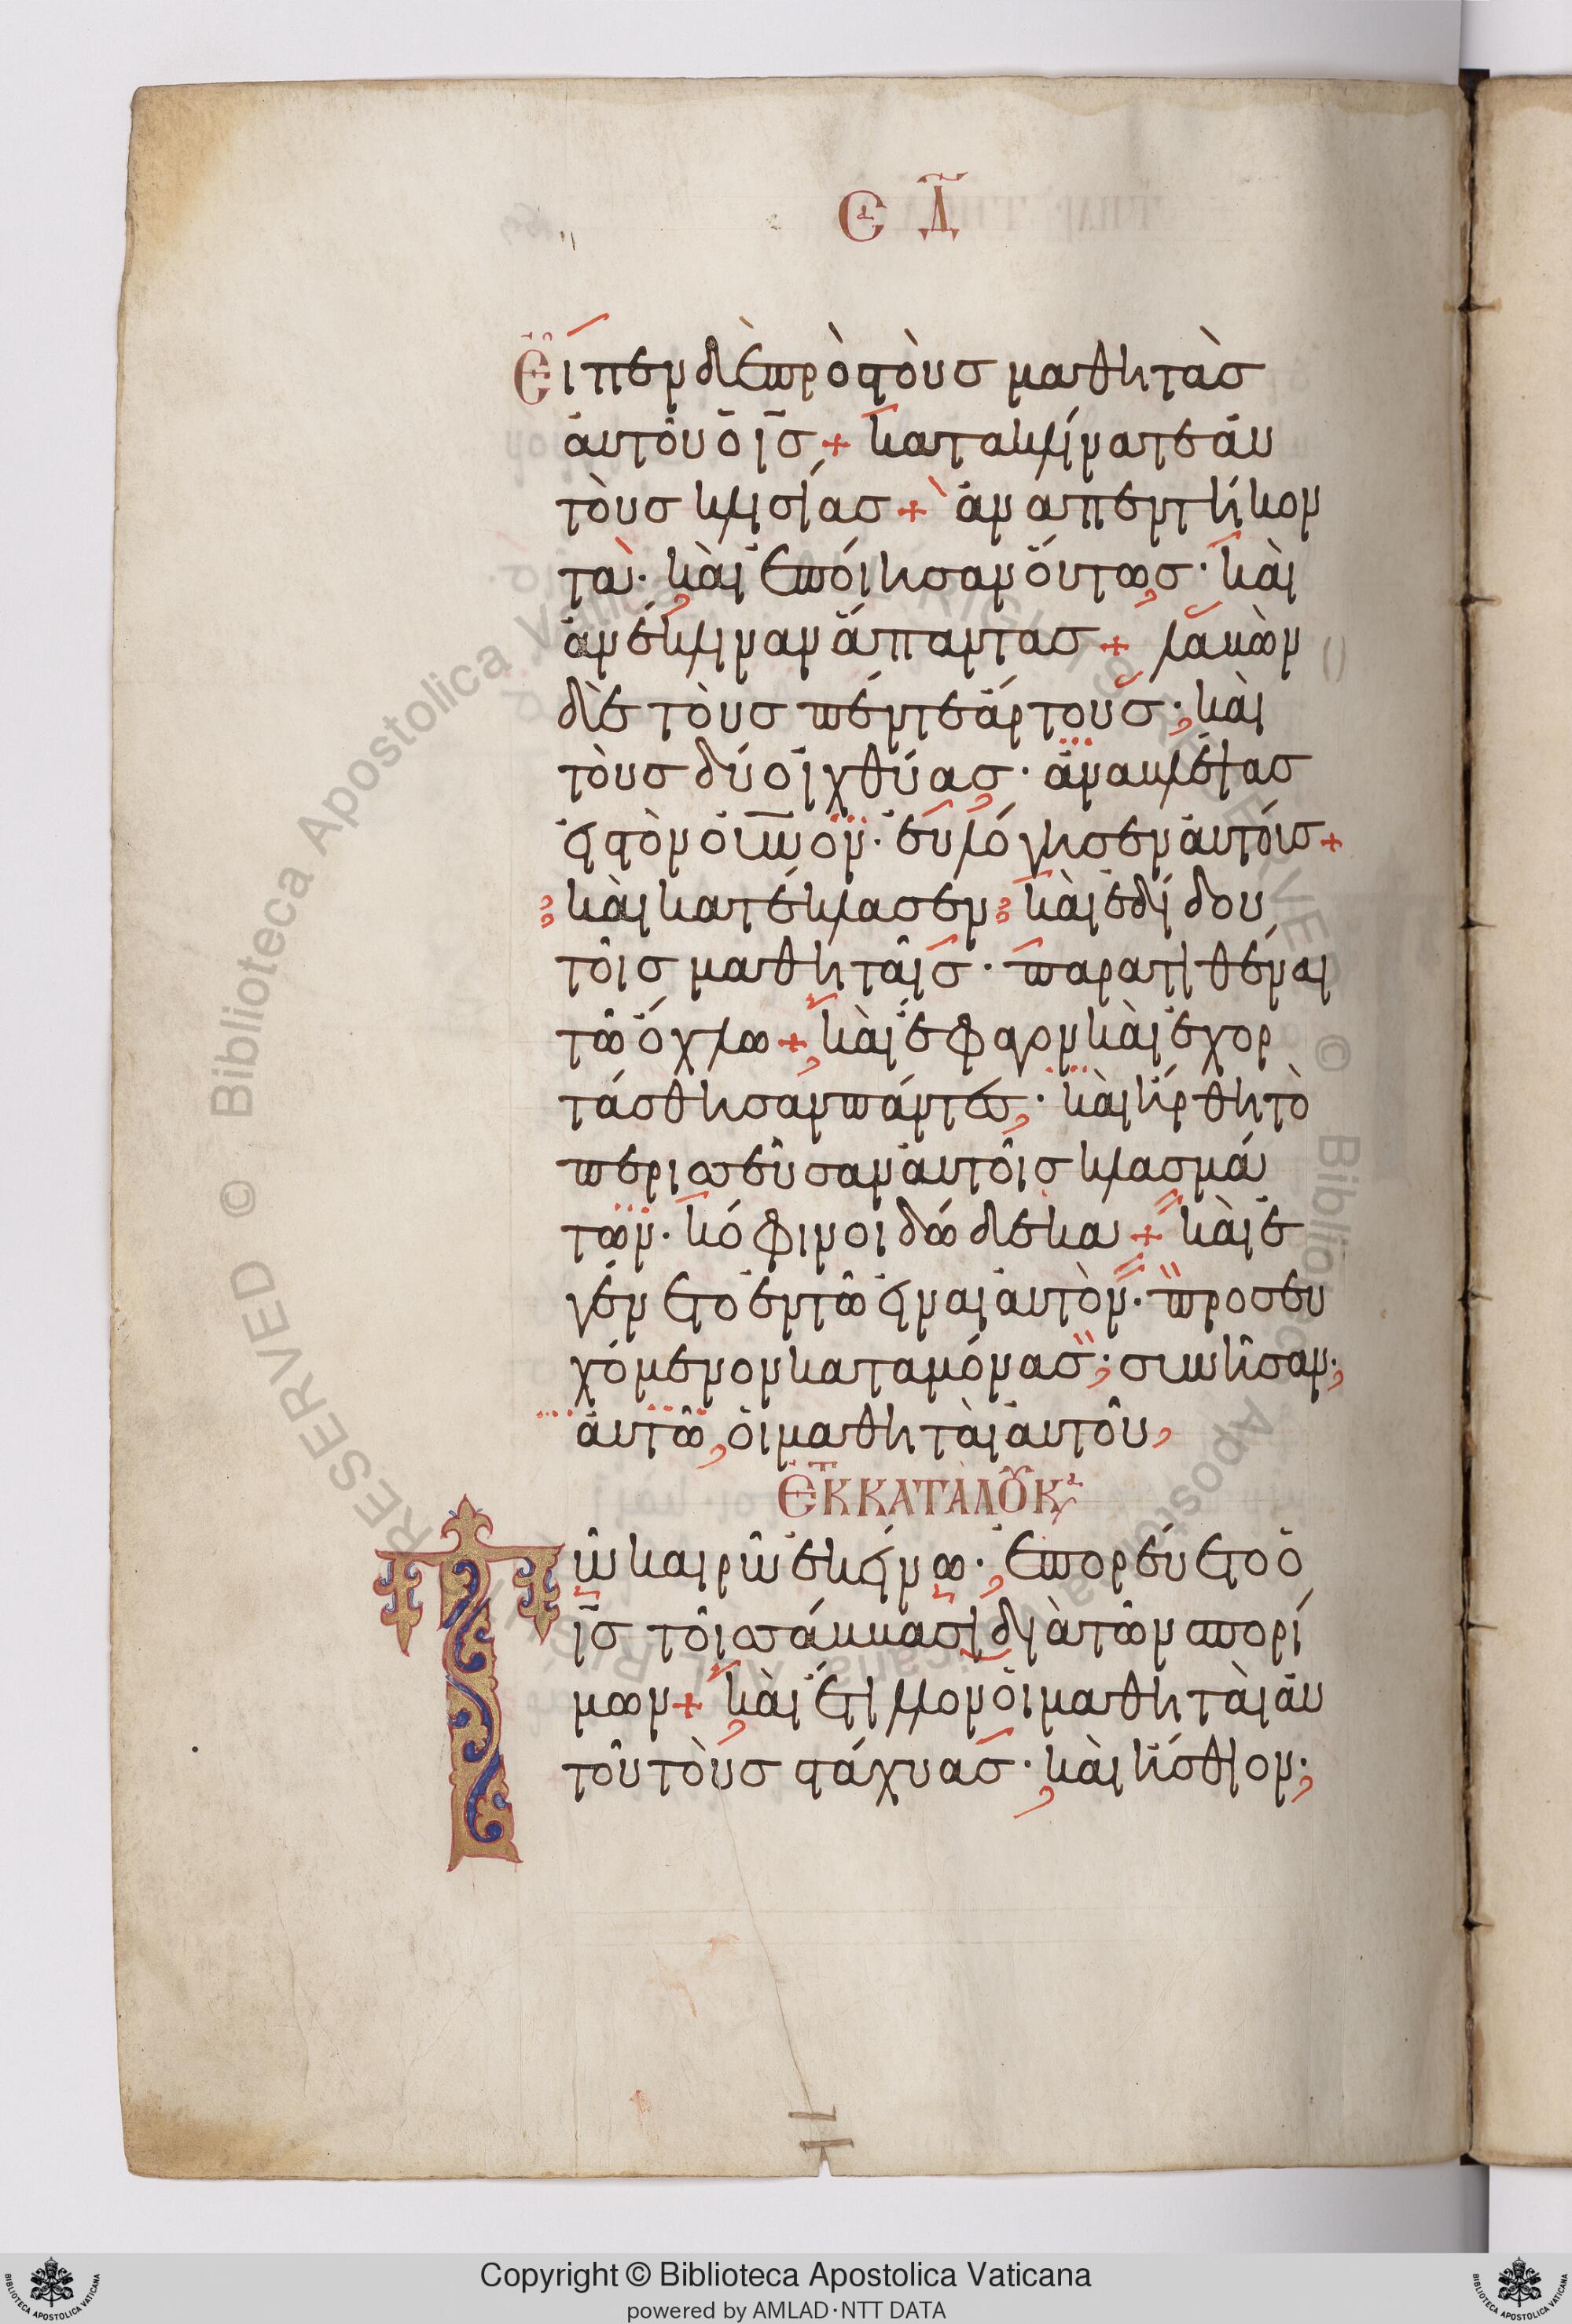 Ε Δ
Εἶπεν δὲ πρὸς τοὺς μαθητὰς
αὐτοῦ ὁ ι̅ς̅ + κατακλίνατε αὐ
τοὺς κλισίας + ἀνὰ πεντήκον
τα· καὶ ἐποίησαν οὕτως· καὶ
ἀνέκλιναν ἅπαντας + λαβὼν
δὲ τοὺς πέντε ἄρτους· καὶ
τοὺς δύο ἰχθύας· ἀναβλέψας
εἰς τὸν ο̅υ̅ν̅ο̅ν̅· εὐλόγησεν αὐτοῖς +
καὶ κατέκλασεν καὶ ἐδίδου
τοῖς μαθηταῖς· παρατιθέναι
τῶ ὄχλω + καὶ ἔφαγον καὶ ἐχορ
τάσθησαν πάντες· καὶ ἤρθη τὸ
περισσεῦσαν αὐτοῖς κλασμά
των· κόφινοι δώδεκα + καὶ ἐ
γένετο ἐν τῶ εἶναι αὐτὸν· προσευ
χόμενον καταμόνας· συνῆσαν·
αὐτῶ, οἱ μαθηταὶ αὐτοῦ,
ΕΚ Κ ΑΤΑ ΛΟΥΚ
Τῶ καιρῶ ἐκείνω· ἐπορεύετο ὁ
ι̅ς̅ τοῖς σάββασι διὰ τῶν σπορί
μων + καὶ ἔτιλλον οἱ μαθηταὶ αὐ
τοῦ τοὺς στάχυας· καὶ ἤσθιον·
Copyright © Biblioteca Apostolica Vaticana
powered by AMLAD·NTT DATA